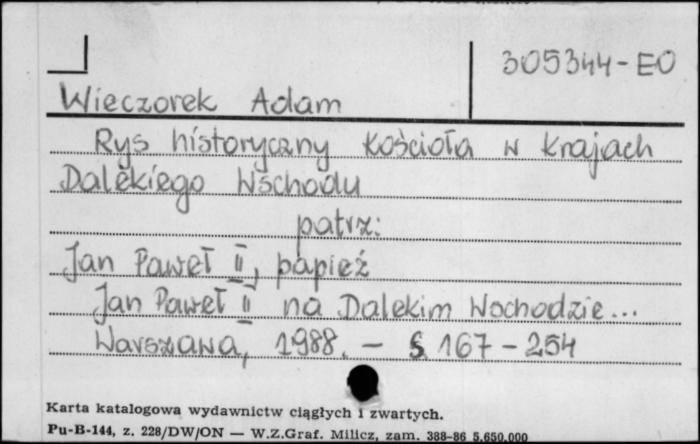 305344-EO
Wieczorek Adam
Rys historyczny Kościoła w krajach
Dalekiego Wschodu
patrz:
Jan Paweł II, papież
Jan Paweł II na Dalekim Wschodzie...
Warszawa, 1988. - S. 167-254
Karta katalogowa wydawnictw ciągłych i zwartych.
Pu-B-144, z. 228/DW/ON — W.Z.Graf. Milicz, zam. 388-86 5.650.000